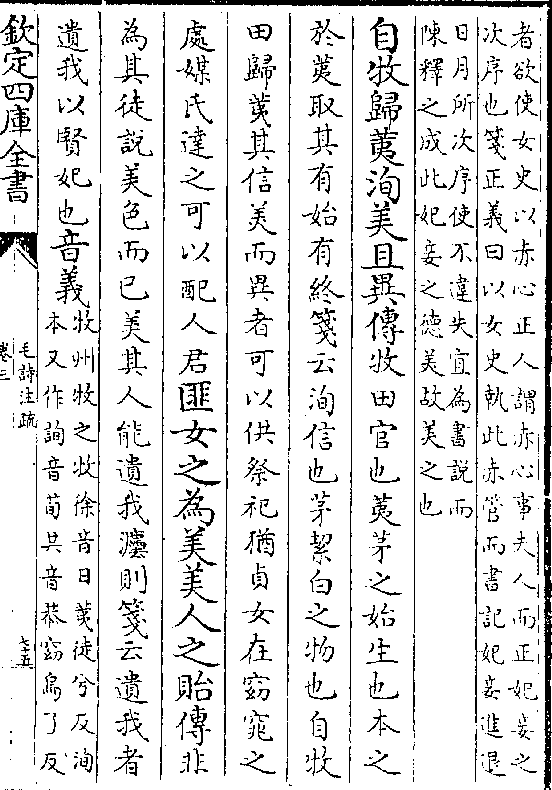 者欲使女史以赤心正人謂赤心事夫人而正妃妾之
次序也箋正義曰以女史執此赤管而書記妃妾進退
日月所次序使不違失宜為書說而
陳釋之成此妃妾之德美故美之也
自牧歸荑洵美且異傳牧田官也荑茅之始生也本之
於荑取其有始有終箋云洵信也茅絜白之物也自牧
田歸荑其信美而異者可以供祭祀猶貞女在窈窕之
處媒氏達之可以配人君匪女之為美美人之貽傳非
為其徒說美色而已美其人能遺我灋則箋云遺我者
遺我以賢妃也音義
牧州牧之牧徐音目荑徒兮反洵
本又作詢音荀共音恭窈烏了反
欽定四庫全書
毛詩注疏
卷三
七十五